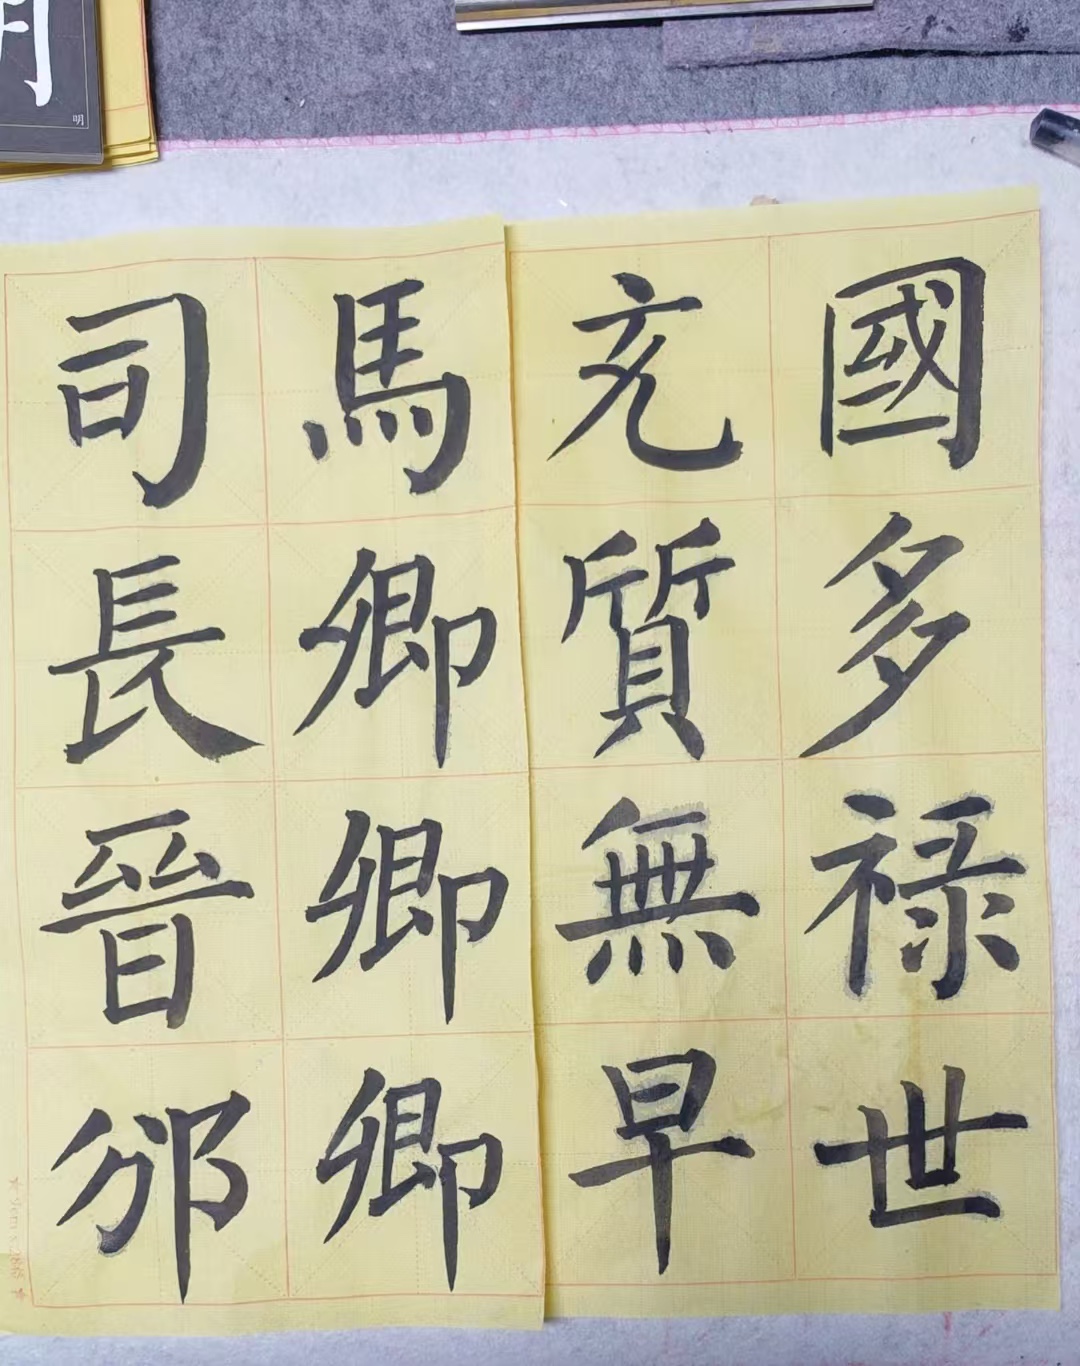 明
國多祿世
充質無早
馬卿卿卿
司長晉邠